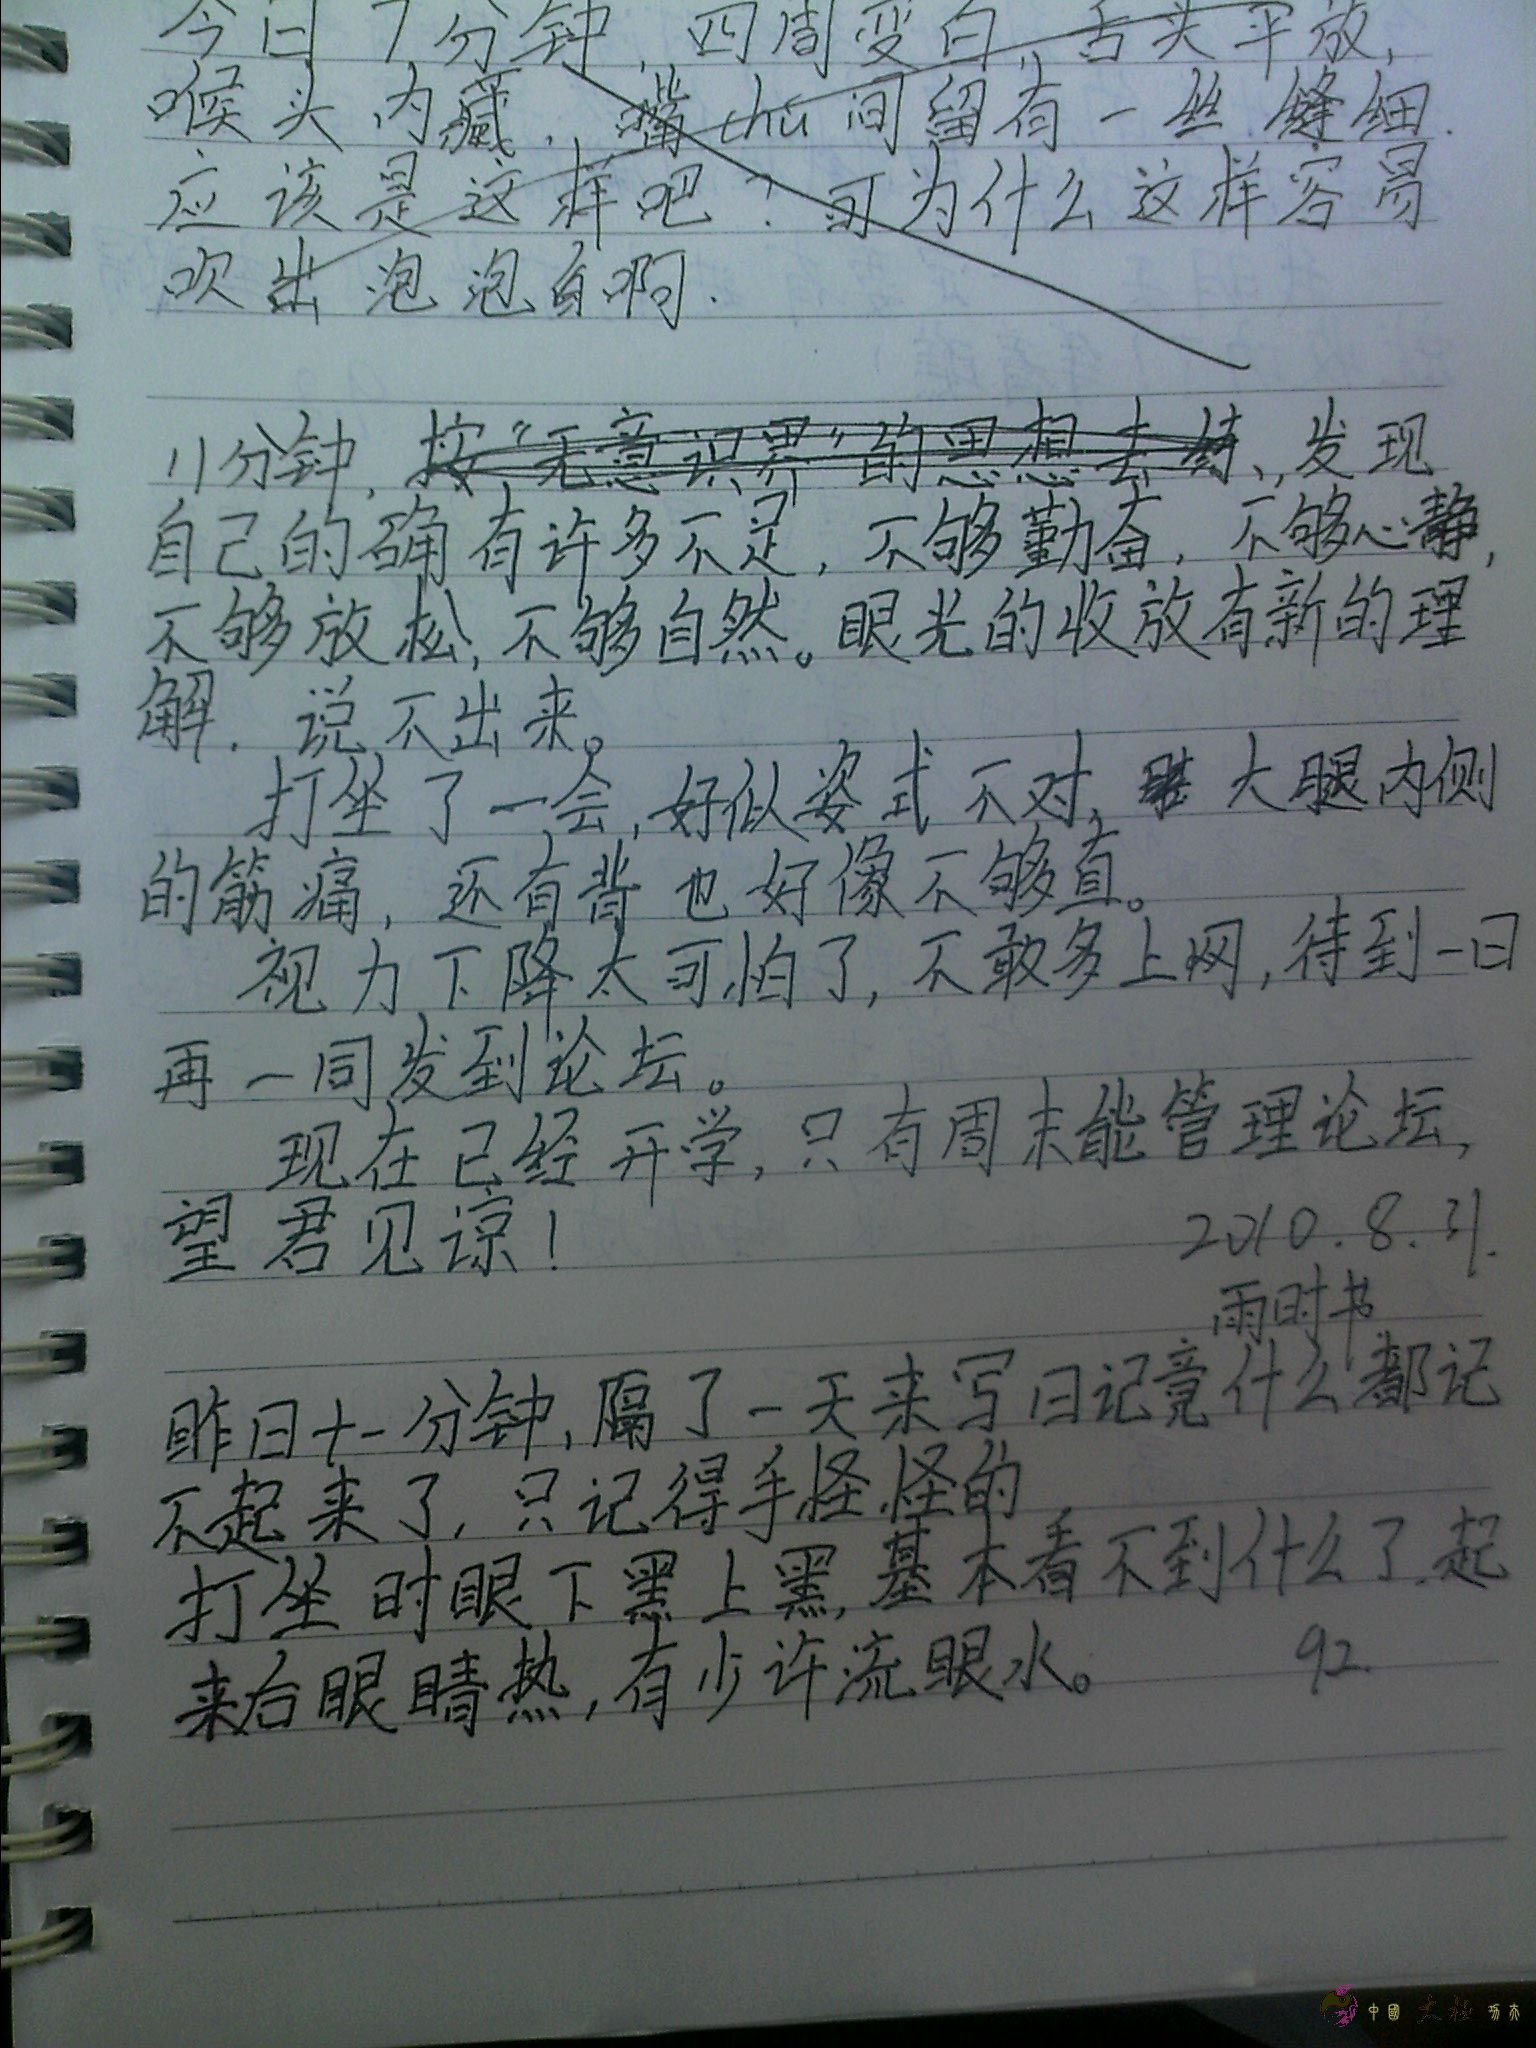 今日7分钟,四周变白,舌头平放,
喉头内藏.嘴chu间留有一丝缝细.
应该是这样吧?可为什么这样容易
吹出泡泡啊.
11分钟,按“无意识界”的思想去练、发现
自己的确有许多不足,不够勤奋,不够心静,
不够放松,不够自然。眼光的收放有新的理
解.说不出来。
打坐了一会,好似姿式不对,大腿内侧
的筋痛,还有背也好像不够直。
视力下降太可怕了,不敢多上网,待到一日
再一同发到论坛。
现在已经开学,只有周末能管理论坛,
望君见谅!
2010.8.31.
雨时书
昨日十一分钟,隔了一天来写日记竟什么都记
不起来了,只记得手怪怪的
打坐时眼下黑上黑,基本看不到什么了.起
来后眼睛热,有少许流眼水。
92.
中國太極功夫